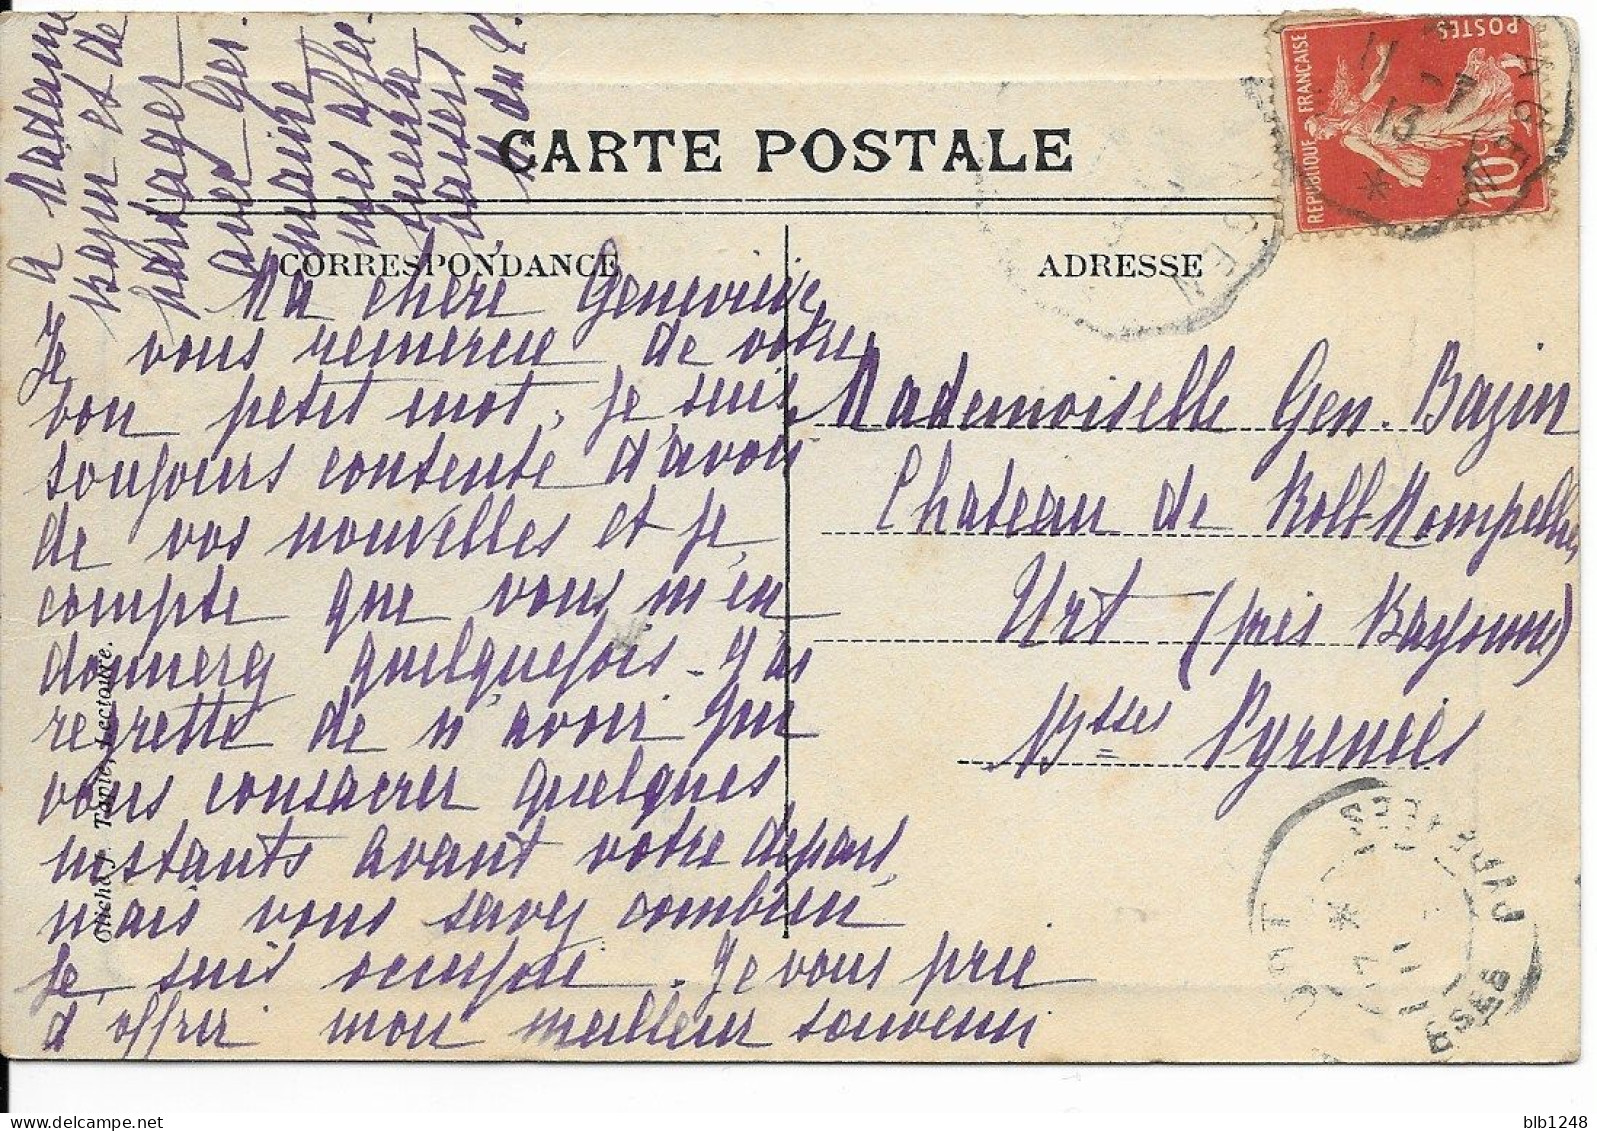 CARTE POSTALE
CORRESPONDANCE
ADRESSE
Ma chère Geneviève,
Je vous remercie de votre
bon petit mot, je suis
toujours contente d'avoir
de vos nouvelles et je
compte que vous m'en
donnerez quelquefois - J'ai
regretté de n'avoir pu
vous consacrer quelques
instants avant votre départ,
mais vous savez combien
je suis occupée. Je vous prie
d'offrir mon meilleur souvenir
à Madame
Bazin et de
partager
avec
mes affec
tueux
baisers
M du
Mademoiselle Gen. Bazin
Chateau de Roll-Montpellier
Urt (près Bayonne)
Bsses Pyrénées
Cliché J. Tapie, Lectoure.
REPUBLIQUE FRANÇAISE
POSTES
10c
AGEN
11 - 7
13
URT
BSES PYRENEES
blb1248